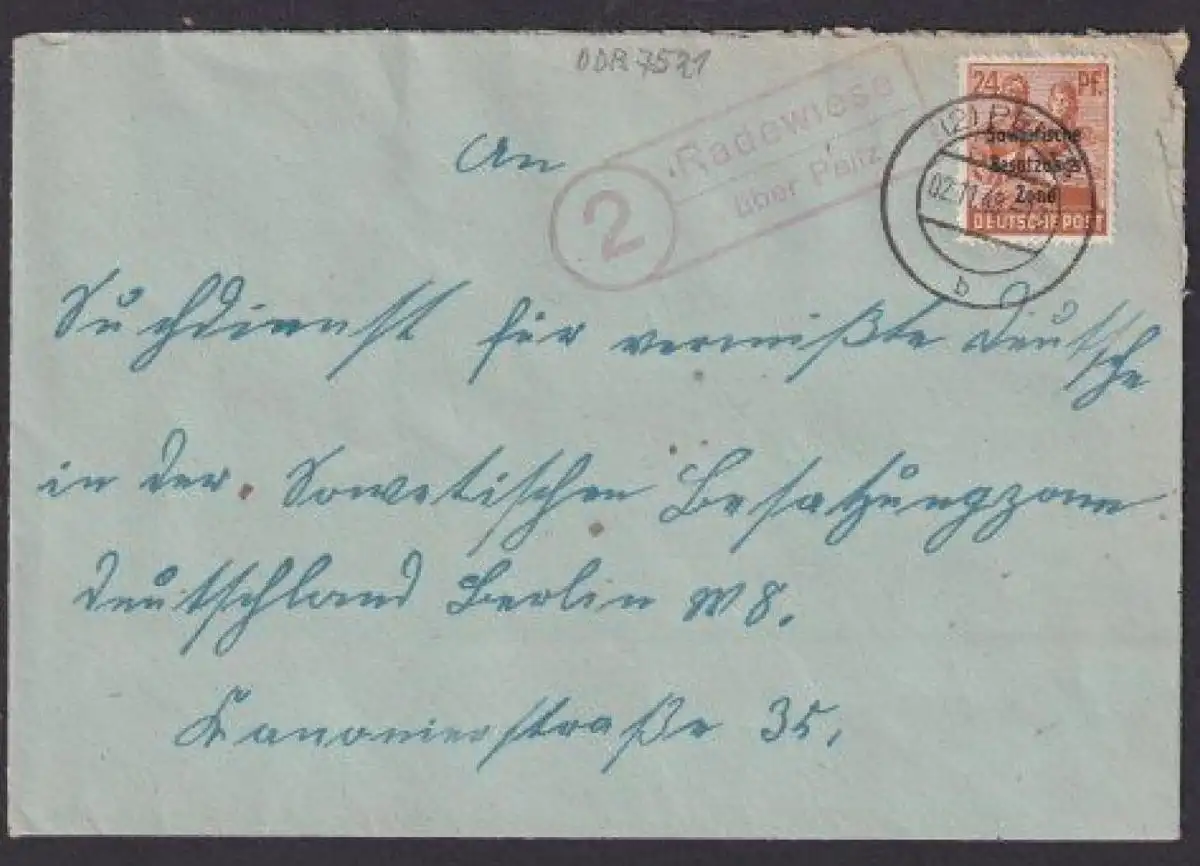 DDR 7521
24 Pf.
Sowjetische
Besatzungs
Zone
DEUTSCHE POST
(2)
02.11.48
b
2
Radewiese
über Peitz
An
Suchdienst für vermißte Deutsche
in der Sowetischen Besatzungzone
Deutschland Berlin W 8.
Kanonierstraße 35.